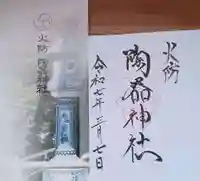 火防
陶器神社
令和七年三月七日
火防 陶器神社